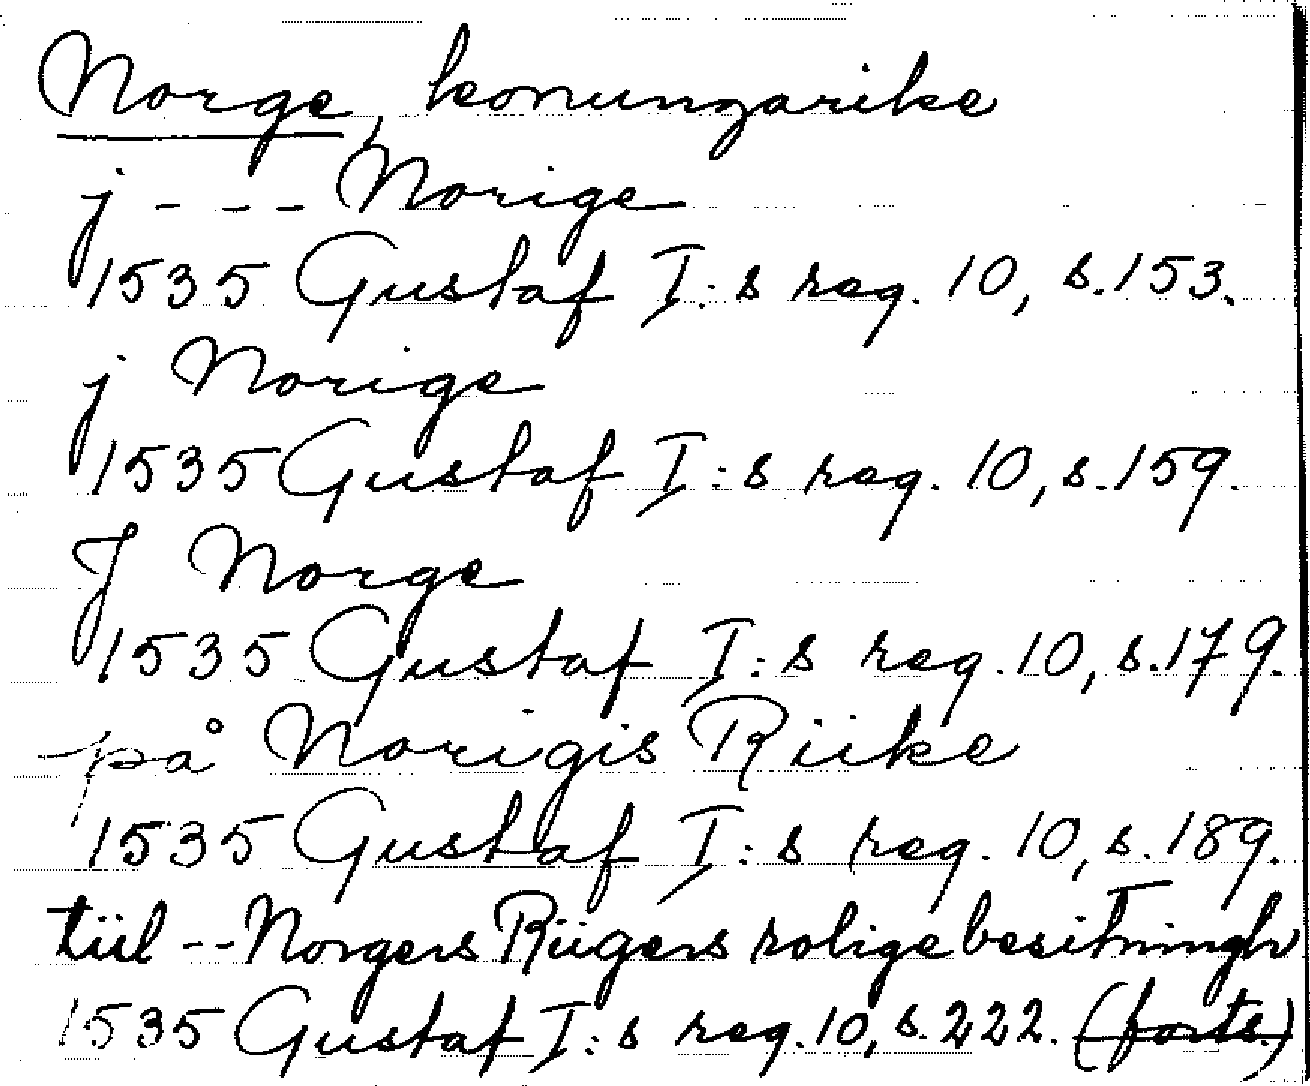 Norge, konungarike
j - - - - Norige
1535 Gustaf I:s reg. 10, s. 153.
j Norige
1535 Gustaf I:s reg. 10, s. 159.
J Norge
1535 Gustaf I:s reg. 10, s. 179.
på Norigis Riike
1535 Gustaf I:s reg. 10, s. 189.
tiil -- Norgers Riigers rolige besitningh
1535 Gustaf I:s reg. 10, s. 222. (forts.)